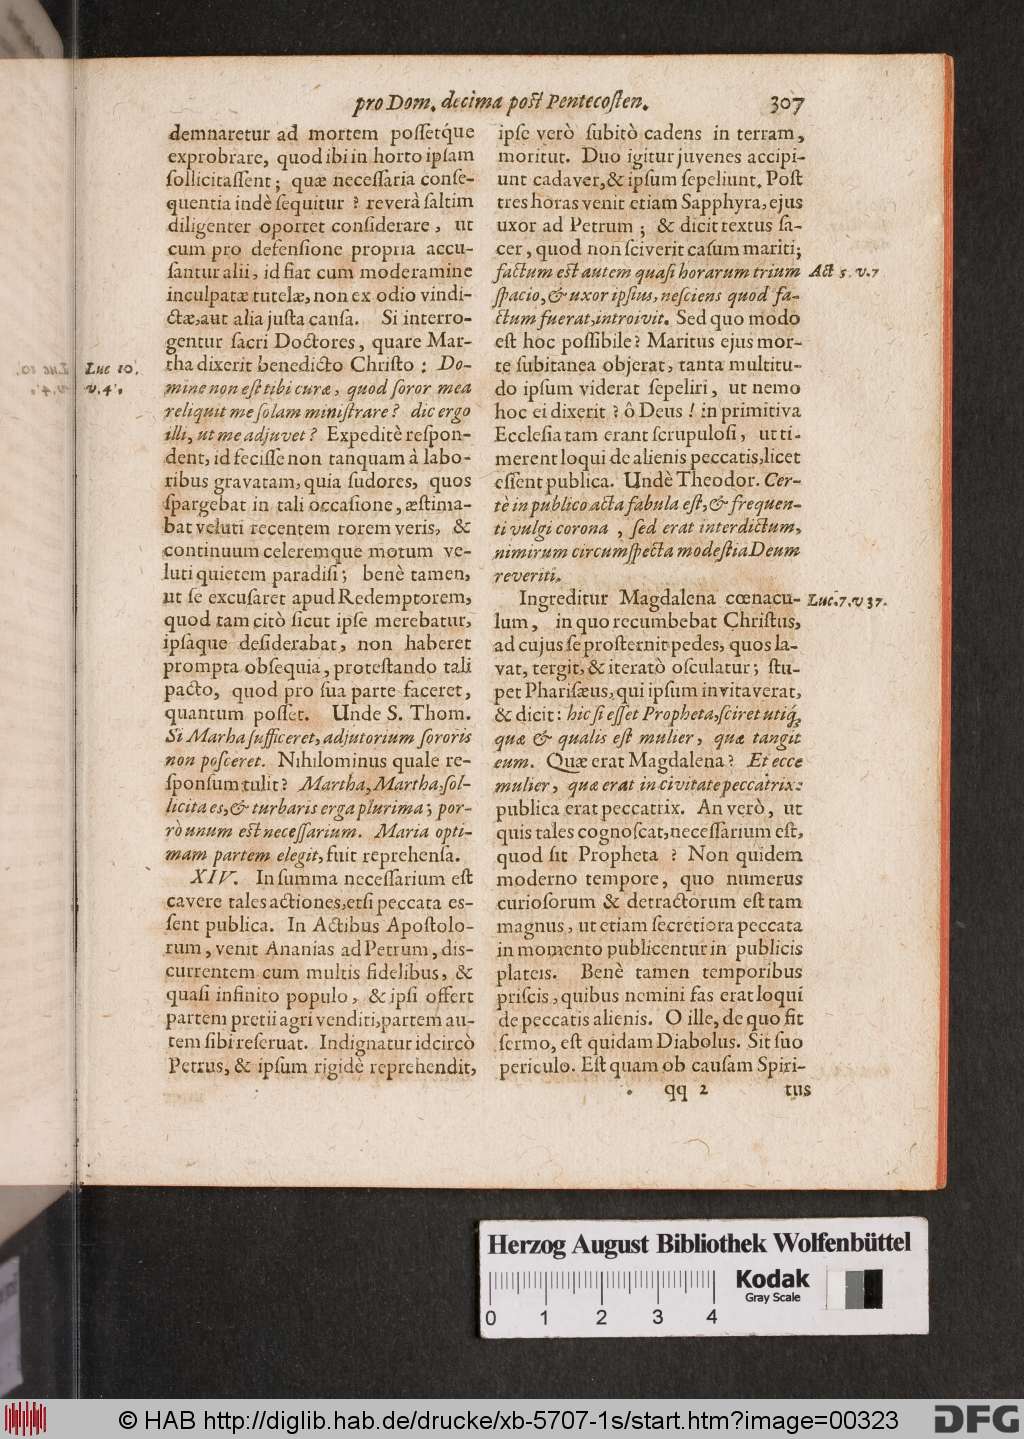 pro Dom. decima post Pentecosten. 307
demnaretur ad mortem possetq́ue
exprobrare, quod ibi in horto ipsam
sollicitassent; quæ necessaria conse-
quentia indè sequitur? reverà saltim
diligenter oportet considerare, ut
cum pro defensione propria accu-
santur alii, id fiat cum moderamine
inculpatæ tutelæ, non ex odio vindi-
ctæ, aut alia justa causa. Si interro-
gentur sacri Doctores, quare Mar-
tha dixerit benedicto Christo: Do-
mine non est tibi curæ, quod soror mea
reliquit me solam ministrare? dic ergo
illi, ut me adjuvet? Expeditè respon-
dent, id fecisse non tanquam à labo-
ribus gravatam, quia sudores, quos
spargebat in tali occasione, æstima-
bat veluti recentem rorem veris, &
continuum celeremque motum ve-
luti quietem paradisi; benè tamen,
ut se excusaret apud Redemptorem,
quod tam citò sicut ipse merebatur,
ipsaque desiderabat, non haberet
prompta obsequia, protestando tali
pacto, quod pro sua parte faceret,
quantum posset. Unde S. Thom.
Si Marha sufficeret, adjutorium sororis
non posceret. Nihilominus quale re-
sponsum tulit? Martha, Martha, sol-
licita es, & turbaris erga plurima; por-
rò unum est necessarium. Maria opti-
mam partem elegit, fuit reprehensa.
XIV. In summa necessarium est
cavere tales actiones, etsi peccata es-
sent publica. In Actibus Apostolo-
rum, venit Ananias ad Petrum, dis-
currentem cum multis fidelibus, &
quasi infinito populo, & ipsi offert
partem pretii agri venditi, partem au-
tem sibi reseruat. Indignatur idcircò
Petrus, & ipsum rigidè reprehendit,
Luc 10.
v. 4
ipse verò subitò cadens in terram,
moritut. Duo igitur juvenes accipi-
unt cadaver, & ipsum sepeliunt. Post
tres horas venit etiam Sapphyra, ejus
uxor ad Petrum; & dicit textus sa-
cer, quod non sciverit casum mariti;
factum est autem quasi horarum trium
spacio, & uxor ipsius, nesciens quod fa-
ctum fuerat, introivit. Sed quo modo
est hoc possibile? Maritus ejus mor-
te subitanea objerat, tanta multitu-
do ipsum viderat sepeliri, ut nemo
hoc ei dixerit? ô Deus! in primitiva
Ecclesia tam erant scrupulosi, ut ti-
merent loqui de alienis peccatis, licet
essent publica. Undè Theodor. Cer-
tè in publico acta fabula est, & frequen-
ti vulgi corona, sed erat interdictum,
nimirum circumspecta modestia Deum
reveriti.
Ingreditur Magdalena cœnacu-
lum, in quo recumbebat Christus,
ad cujus se prosternit pedes, quos la-
vat, tergit, & iteratò osculatur; stu-
pet Pharisæus, qui ipsum invitaverat,
& dicit: hic si esset Propheta, sciret utiq́;
quæ & qualis est mulier, quæ tangit
eum. Quæ erat Magdalena? Et ecce
mulier, quæ erat in civitate peccatrix:
publica erat peccatrix. An verò, ut
quis tales cognoscat, necessarium est,
quod sit Propheta? Non quidem
moderno tempore, quo numerus
curiosorum & detractorum est tam
magnus, ut etiam secretiora peccata
in momento publicentur in publicis
plateis. Benè tamen temporibus
priscis, quibus nemini fas erat loqui
de peccatis alienis. O ille, de quo fit
sermo, est quidam Diabolus. Sit suo
periculo. Est quam ob causam Spiri-
Act 5. v. 7
Luc. 7. v 37.
qq 2 tus
Herzog August Bibliothek Wolfenbüttel
Kodak
Gray Scale
0 1 2 3 4
© HAB http://diglib.hab.de/drucke/xb-5707-1s/start.htm?image=00323
DFG